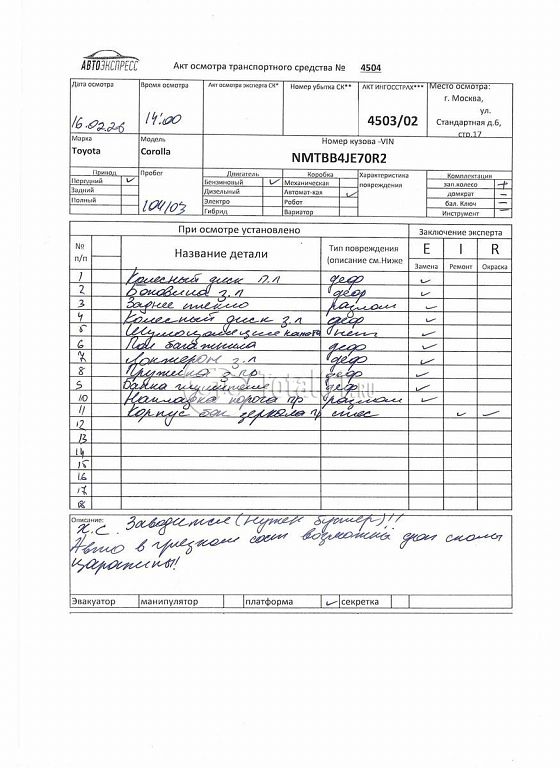 АВТОЭКСПРЕСС
Акт осмотра транспортного средства № 4504
Дата осмотра Время осмотра Акт осмотра эксперта СК* Номер убытка СК** АКТ ИНГОССТРАХ*** Место осмотра:
г. Москва,
ул.
16.02.26 14:00 4503/02 Стандартная д.6,
стр.17
Марка Модель Номер кузова -VIN
Toyota Corolla NMTBB4JE70R2
Привод Пробег Двигатель Коробка Характеристика Комплектация
Передний Бензиновый Механическая повреждения зап.колесо +
Задний Дизельный Автомат-кая домкрат -
Полный 104103 Электро Робот бал. Ключ -
Гибрид Вариатор Инструмент -
При осмотре установлено Заключение эксперта
№ п/п Название детали Тип повреждения (описание см.Ниже E I R
Замена Ремонт Окраска
1 Колесный диск п.л деф
2 Боковина з.л деф
3 Заднее стекло разлом
4 Колесный диск з.л деф
5 нет
6 Пол багажника деф
7 Лонжерон з.л деф
8 Пружина з.пр деф
9 Банка глушителя деф
10 Накладка порога пр разлом
11 Корпус бок зеркала пр
12
13
14
15
16
17
18
Описание:
Х.С. Заводится (нужен бустер)!!
Авто в грязном сост возможны доп сколы
царапины!
Эвакуатор манипулятор платформа секретка